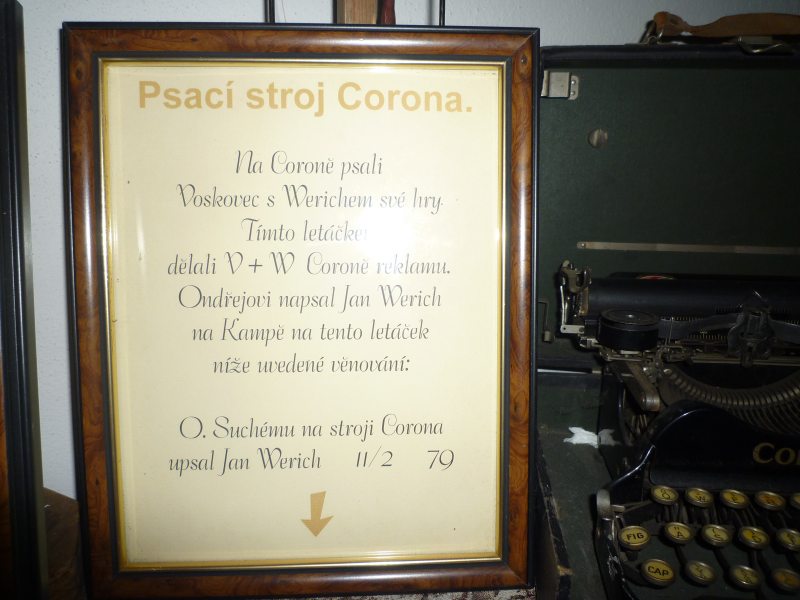 Psací stroj Corona.
Na Coroně psali
Voskovec s Werichem své hry.
Tímto
dělali V + W Coroně reklamu.
Ondřejovi napsal Jan Werich
na Kampě na tento letáček
níže uvedené věnování:
O. Suchému na stroji Corona
upsal Jan Werich 11/2 79
FIG
CAP